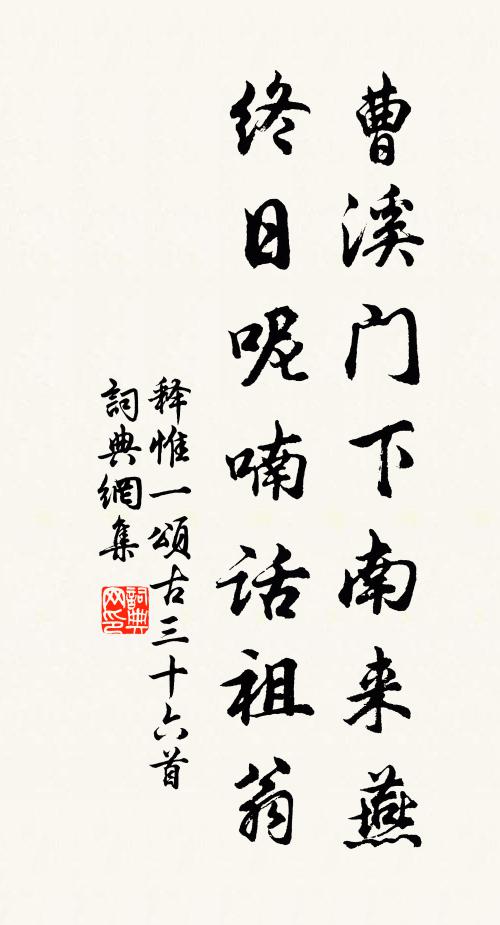 曹溪门下南来燕
终日呢喃话祖翁
释惟一頌古三十六首
詞典網集
詞典网印